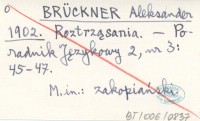 o BRÜCKNER Aleksander
1902. Roztrząsania. – Po-
radnik Językowy 2, nr 3:
45-47.
M.in.: zakopiański
BT/006/0837